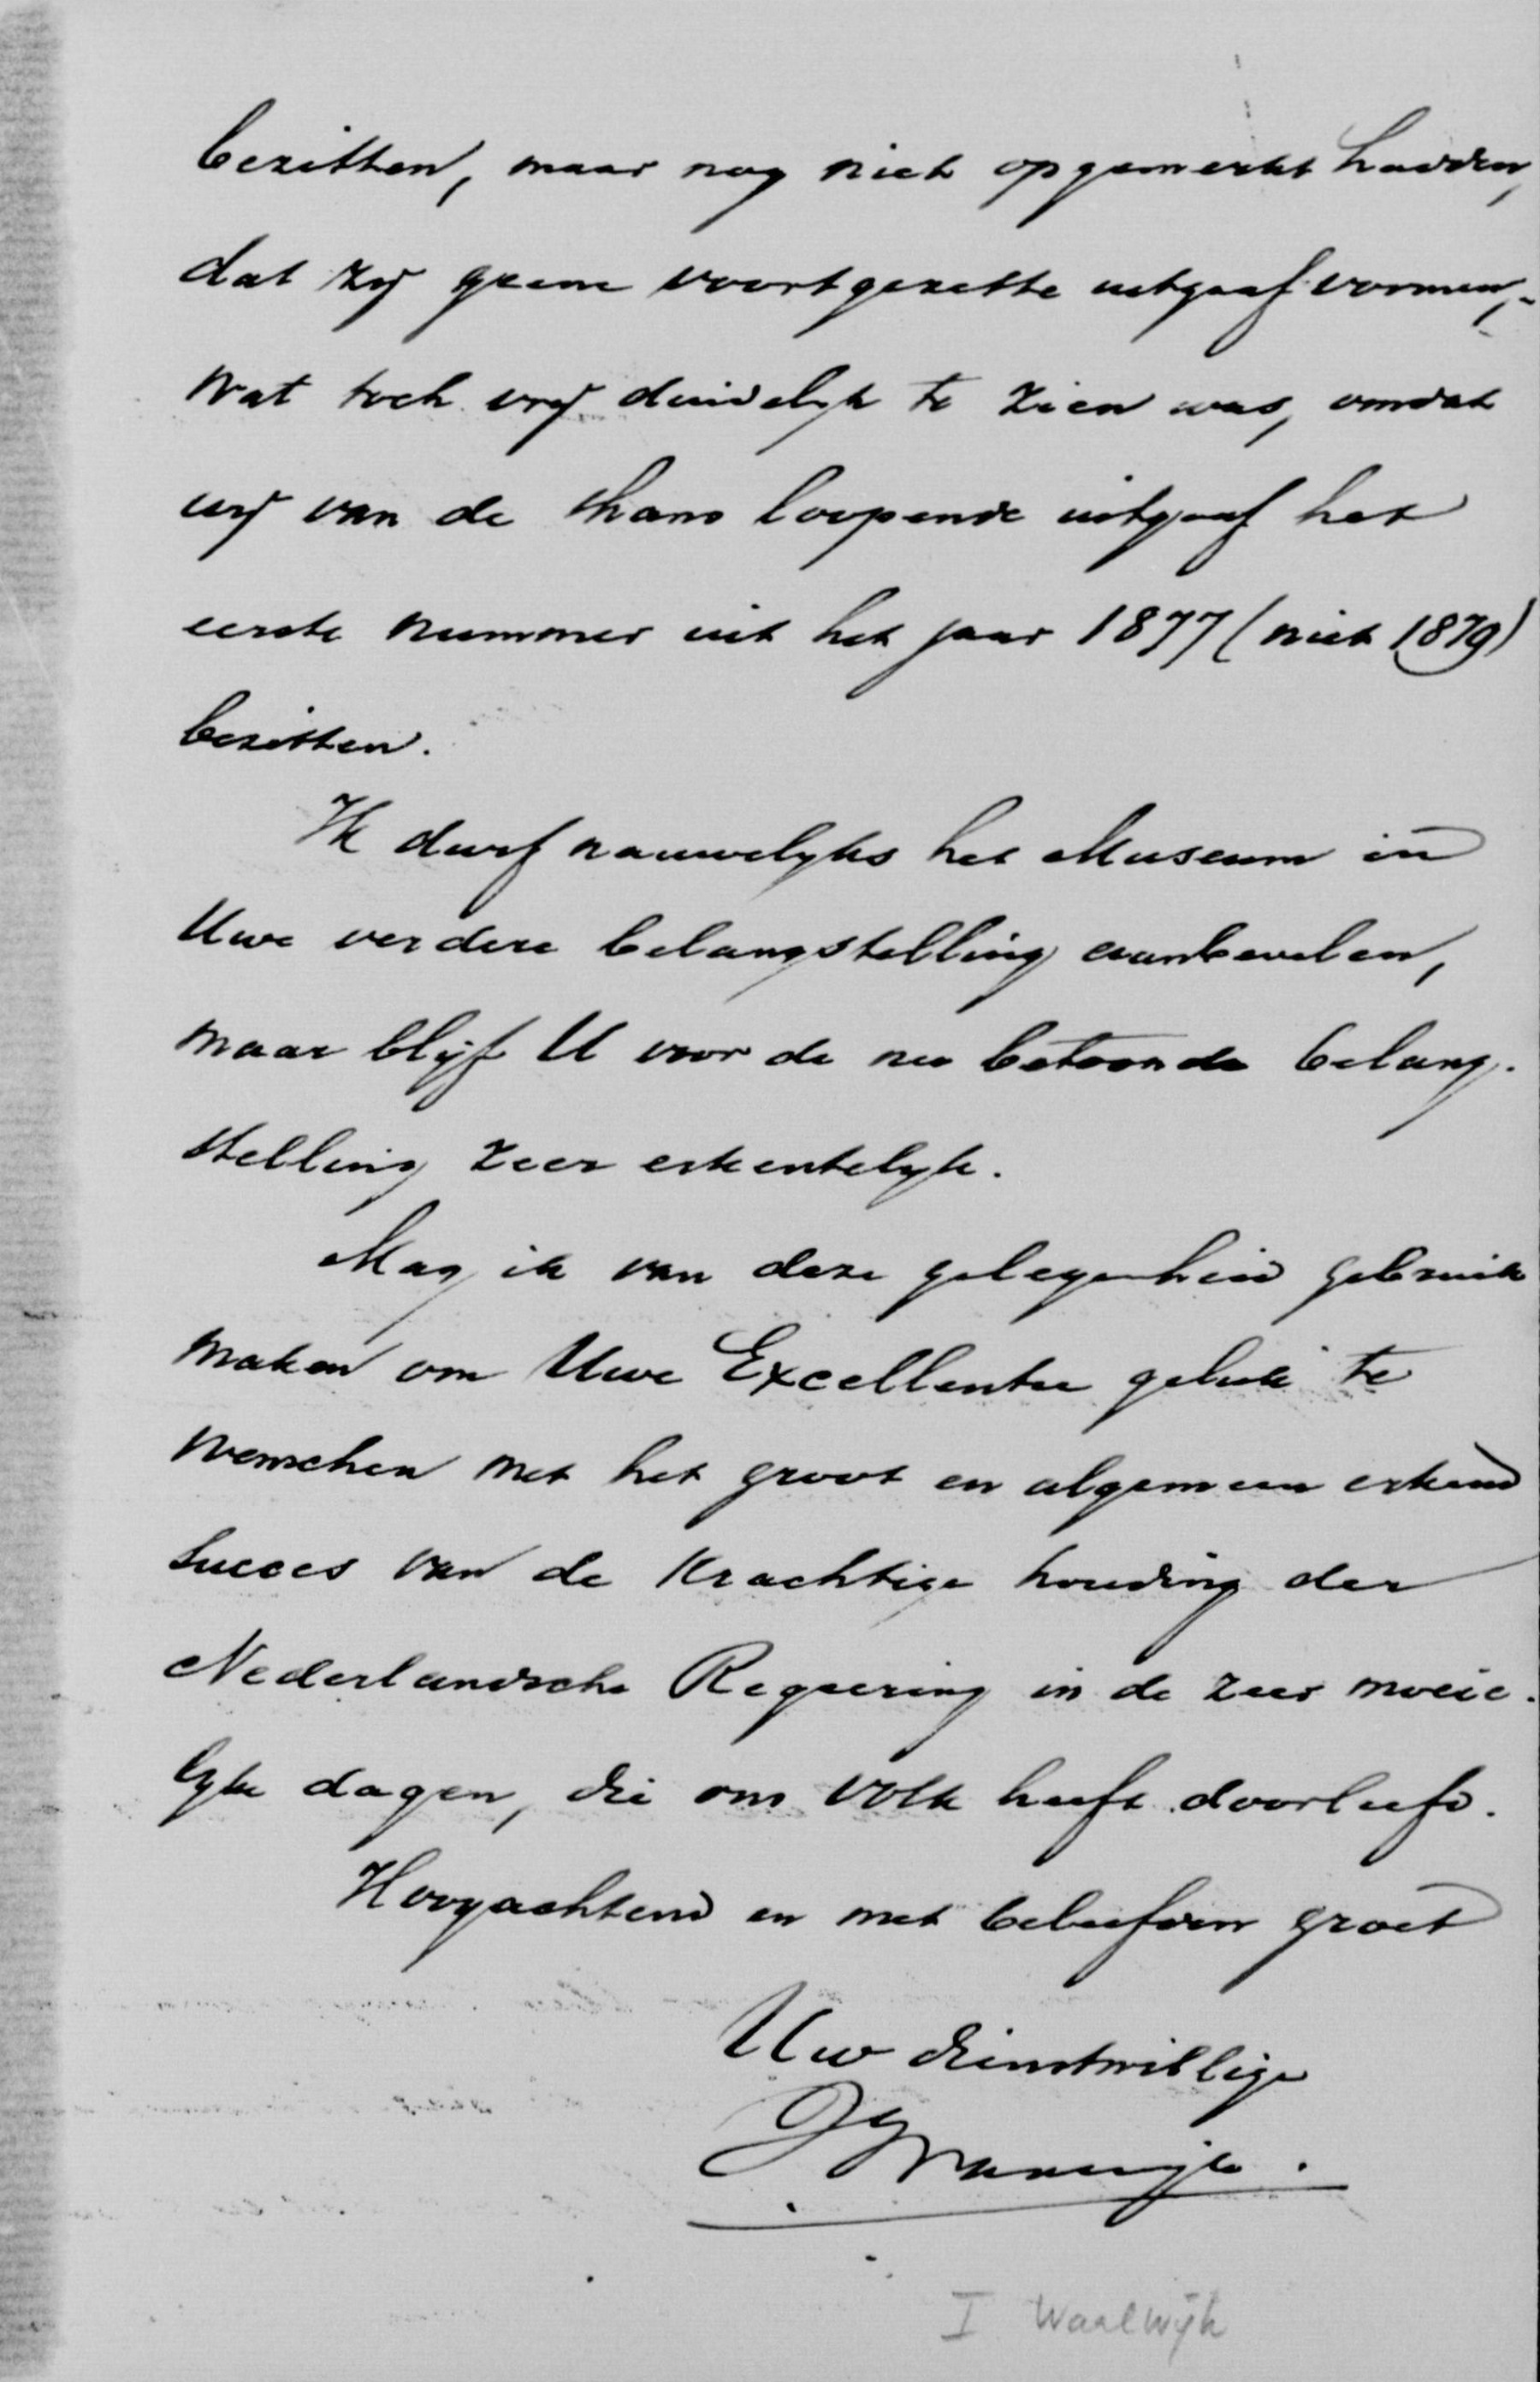 bezitten, maar nog niet opgemerkt hadden,
dat zij geene voortgezette uitgaaf vormen,-
wat toch vrij duidelijk te zien was, omdat
wij van de thans loopende uitgaaf het
eerste nummer uit het jaar 1877 (niet 1879)
bezitten.
Ik durf nauwelijks het Museum in
Uwe verdere belangstelling aanbevelen,
maar blijf U voor de nu betoonde belang-
stelling zeer erkentelijk.
Mag ik van deze gelegenheid gebruik
maken om Uwe Excellentie geluk te
wenschen met het groot en algemeen erkend
succes van de krachtige houding der
Nederlandsche Regeering in de zeer moeie-
lijke dagen, die ons volk heeft doorleefd.
Hoogachtend en met beleefden groet
Uw dienstwillige
I Waalwijk